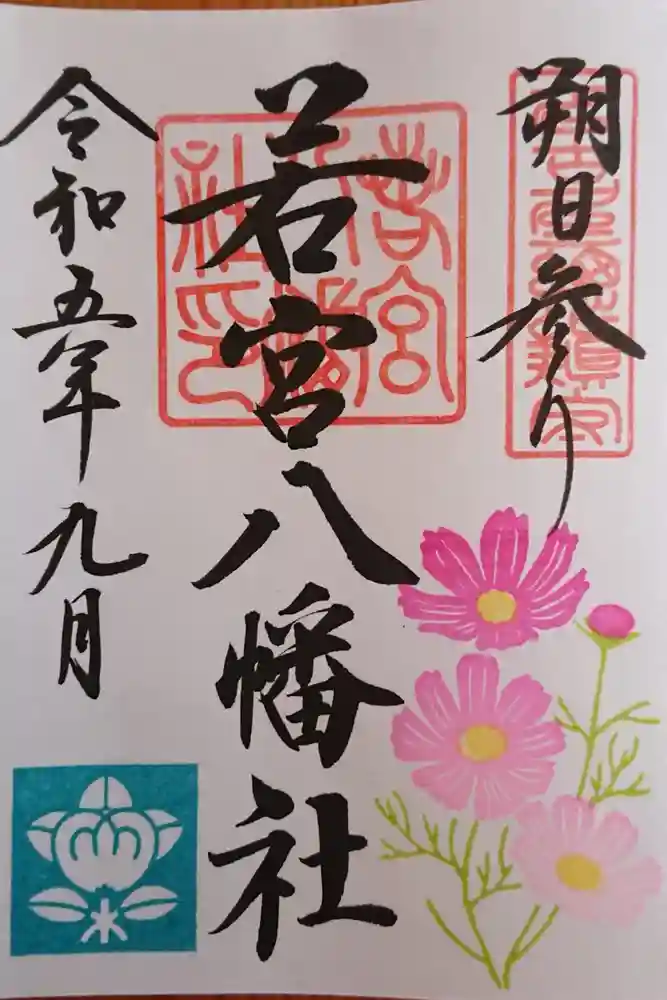 朔日参り
若宮八幡社
令和五年九月
若宮
八幡
社印